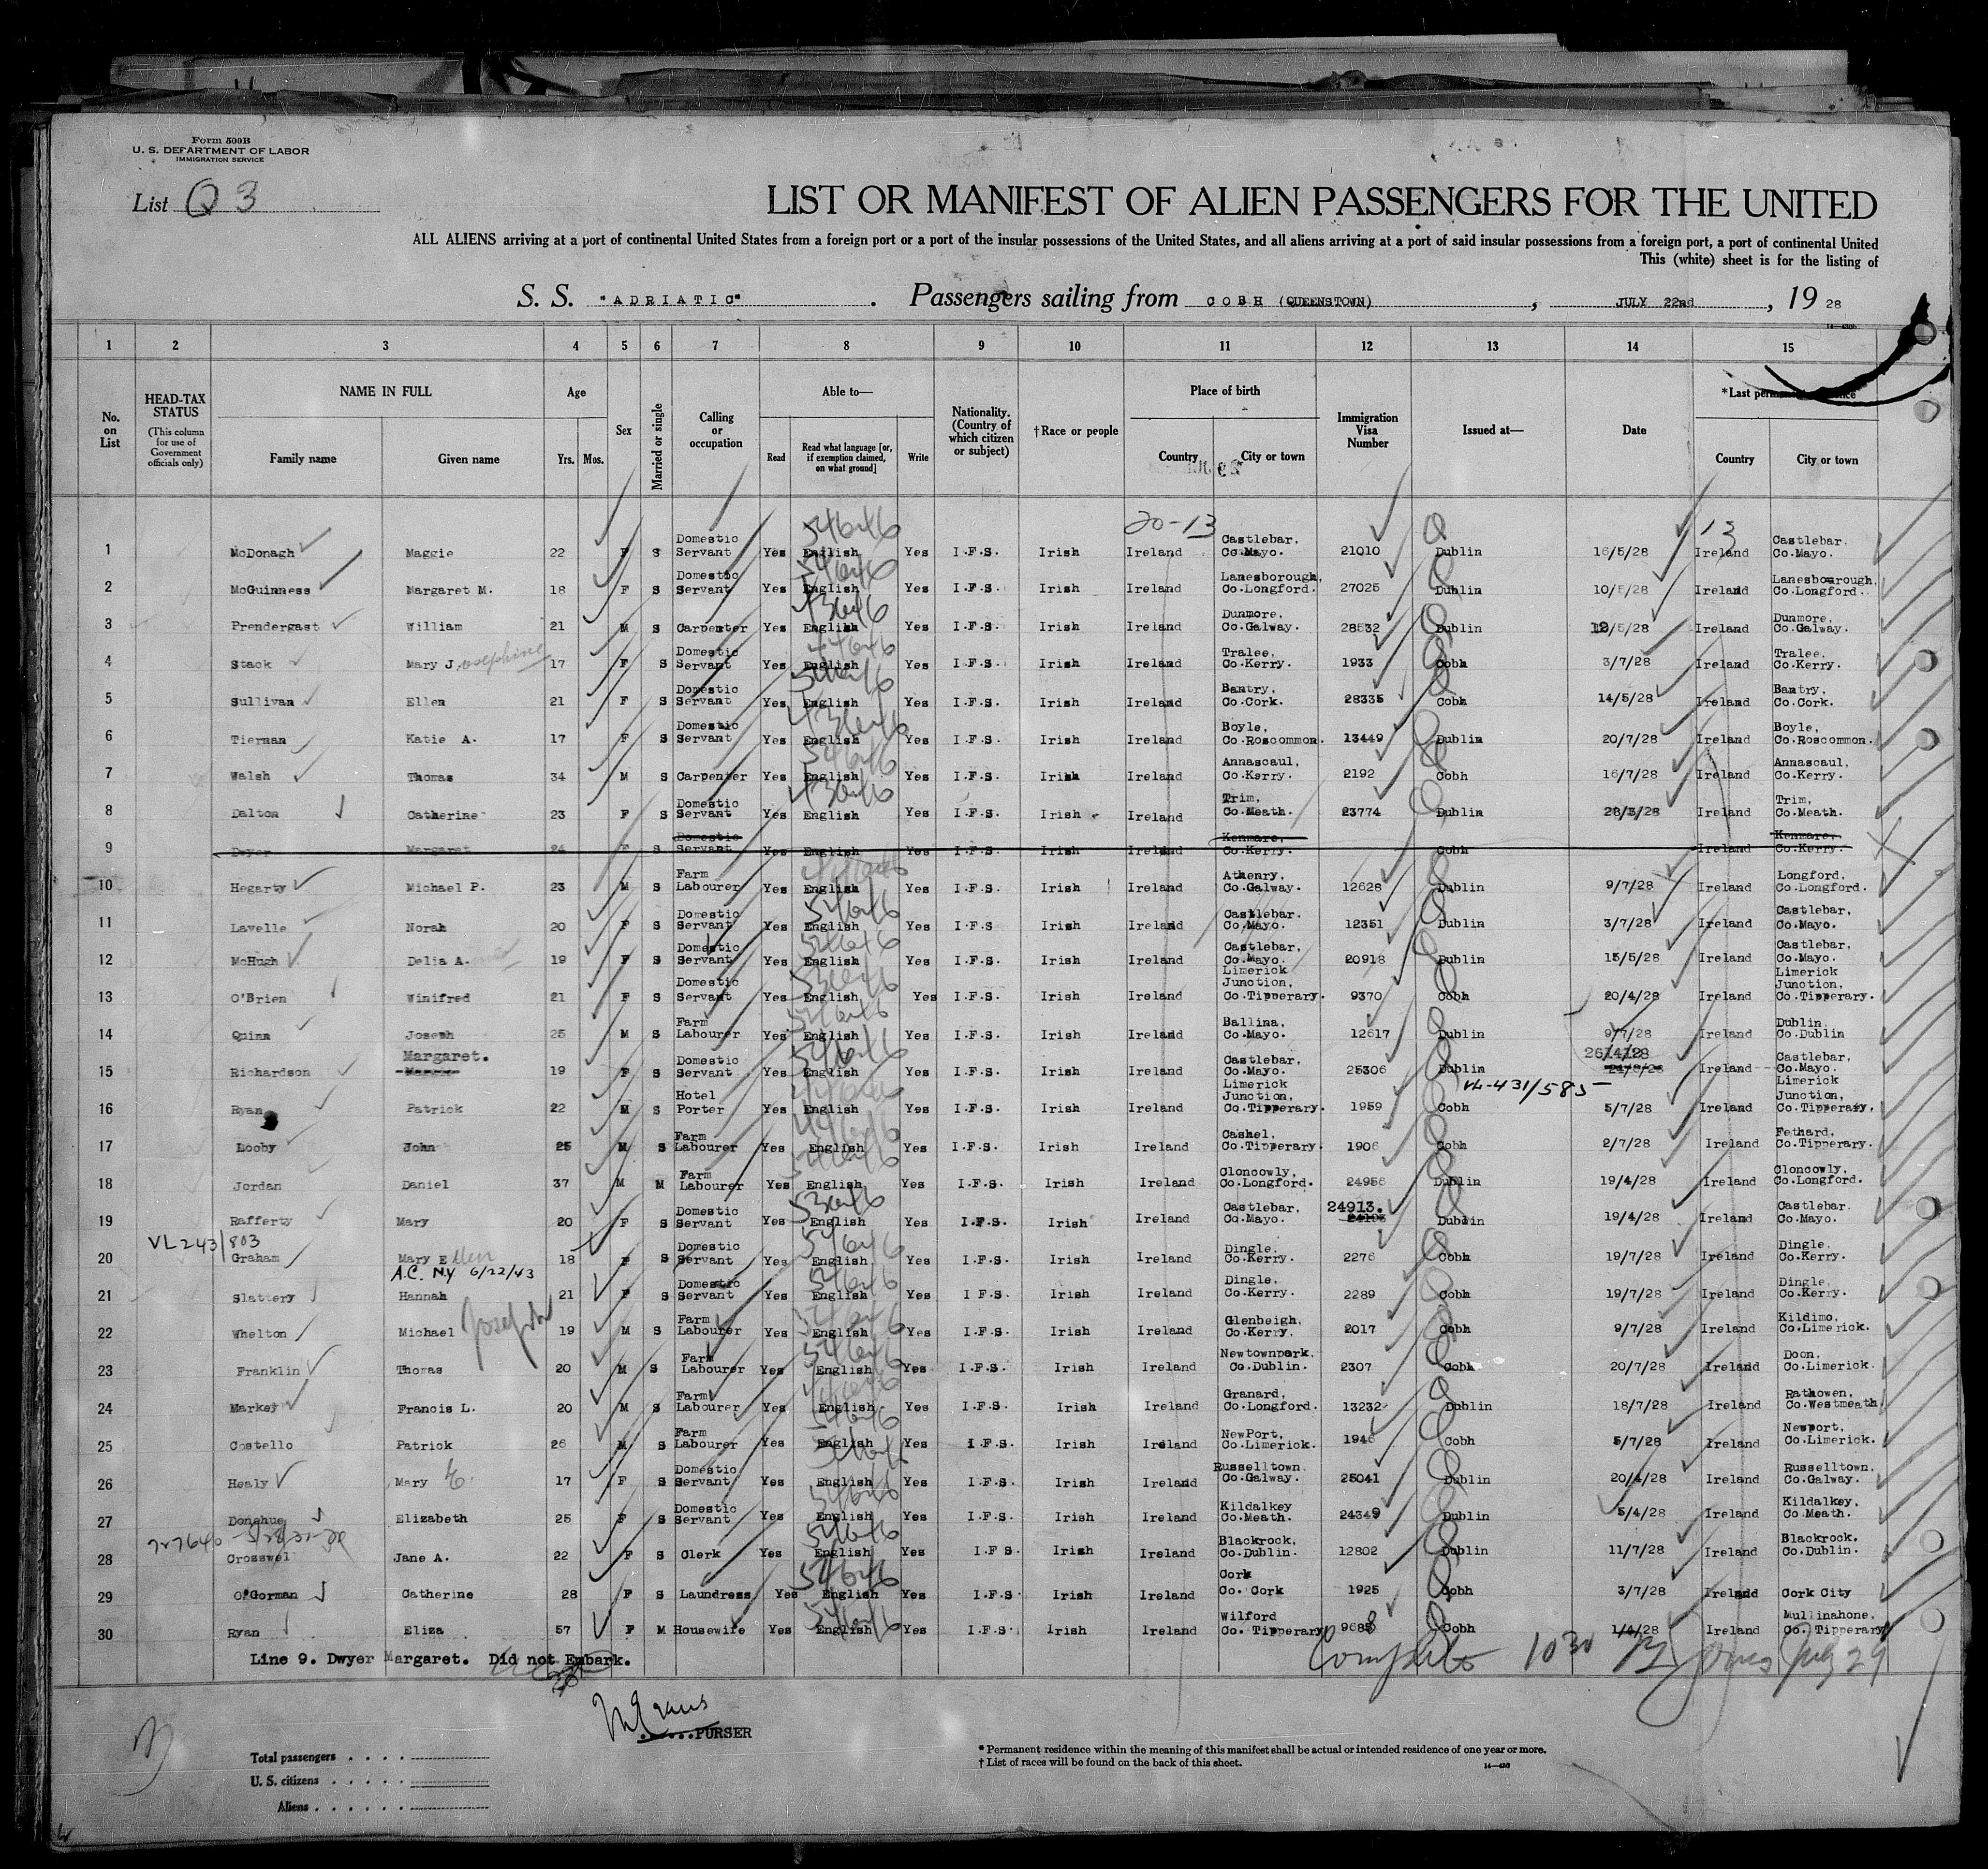 Form 500B
U. S. DEPARTMENT OF LABOR
IMMIGRATION SERVICE
List Q 3
LIST OR MANIFEST OF ALIEN PASSENGERS FOR THE UNITED
ALL ALIENS arriving at a port of continental United States from a foreign port or a port of the insular possessions of the United States, and all aliens arriving at a port of said insular possessions from a foreign port, a port of continental United
This (white) sheet is for the listing of
S. S. "ADRIATIC" . Passengers sailing from COBH (QUEENSTOWN) , JULY 22nd , 19 28
1 2 3 4 5 6 7 8 9 10 11 12 13 14 15
No. on List
HEAD-TAX STATUS (This column for use of Government officials only)
NAME IN FULL Family name Given name
Age Yrs. Mos.
Sex
Married or single
Calling or occupation
Able to— Read Read what language [or, if exemption claimed, on what ground] Write
Nationality. (Country of which citizen or subject)
†Race or people
Place of birth Country City or town
Immigration Visa Number
Issued at—
Date
*Last permanent residence Country City or town
20-13 13
1 McDonagh Maggie 22 F S Domestic Servant Yes English Yes I.F.S. Irish Ireland Castlebar, Co.Mayo. 21010 Dublin 16/5/28 Ireland Castlebar, Co.Mayo.
2 McGuinness Margaret M. 18 F S Domestic Servant Yes English Yes I.F.S. Irish Ireland Lanesborough, Co.Longford. 27025 Dublin 10/5/28 Ireland Lanesborough, Co.Longford.
3 Prendergast William 21 M S Carpenter Yes English Yes I.F.S. Irish Ireland Dunmore, Co.Galway. 28532 Dublin /5/28 Ireland Dunmore, Co.Galway.
4 Stack Mary Josephine 17 F S Domestic Servant Yes English Yes I.F.S. Irish Ireland Tralee, Co.Kerry. 1933 Cobh 3/7/28 Ireland Tralee, Co.Kerry.
5 Sullivan Ellen 21 F S Domestic Servant Yes English Yes I.F.S. Irish Ireland Bantry, Co.Cork. 28335 Cobh 14/5/28 Ireland Bantry, Co.Cork.
6 Tiernan Katie A. 17 F S Domestic Servant Yes English Yes I.F.S. Irish Ireland Boyle, Co.Roscommon. 13449 Dublin 20/7/28 Ireland Boyle, Co.Roscommon.
7 Walsh Thomas 34 M S Carpenter Yes English Yes I.F.S. Irish Ireland Annascaul, Co.Kerry. 2192 Cobh 16/7/28 Ireland Annascaul, Co.Kerry.
8 Dalton Catherine 23 F S Domestic Servant Yes English Yes I.F.S. Irish Ireland Trim, Co.Meath. 23774 Dublin 28/3/28 Ireland Trim, Co.Meath.
9 Dwyer Margaret 24 F S Domestic Servant Yes English Yes I.F.S. Irish Ireland Kenmare, Co.Kerry. Cobh Ireland Kenmare, Co.Kerry.
10 Hegarty Michael P. 23 M S Farm Labourer Yes English Yes I.F.S. Irish Ireland Athenry, Co.Galway. 12628 Dublin 9/7/28 Ireland Longford, Co.Longford.
11 Lavelle Norah 20 F S Domestic Servant Yes English Yes I.F.S. Irish Ireland Castlebar. Co.Mayo. 12351 Dublin 3/7/28 Ireland Castlebar, Co.Mayo.
12 McHugh Delia A. 19 F S Domestic Servant Yes English Yes I.F.S. Irish Ireland Castlebar, Co.Mayo. 20918 Dublin 15/5/28 Ireland Castlebar, Co.Mayo.
13 O'Brien Winifred 21 F S Domestic Servant Yes English Yes I.F.S. Irish Ireland Limerick Junction, Co.Tipperary. 9370 Cobh 20/4/28 Ireland Limerick Junction, Co.Tipperary.
14 Quinn Joseph 25 M S Farm Labourer Yes English Yes I.F.S. Irish Ireland Ballina, Co.Mayo. 12617 Dublin 9/7/28 Ireland Dublin. Co.Dublin
15 Richardson Margaret. 19 F S Domestic Servant Yes English Yes I.F.S. Irish Ireland Castlebar, Co.Mayo. 25306 Dublin 26/4/28 Ireland Castlebar, Co.Mayo.
VL-431/585
16 Ryan Patrick 22 M S Hotel Porter Yes English Yes I.F.S. Irish Ireland Limerick Junction, Co.Tipperary. 1959 Cobh 5/7/28 Ireland Limerick Junction, Co.Tipperary.
17 Looby John 25 M S Farm Labourer Yes English Yes I.F.S. Irish Ireland Cashel, Co.Tipperary. 1906 Cobh 2/7/28 Ireland Fethard, Co.Tipperary.
18 Jordan Daniel 37 M M Farm Labourer Yes English Yes I.F.S. Irish Ireland Cloncowly, Co.Longford. 24956 Dublin 19/4/28 Ireland Cloncowly, Co.Longford.
19 Rafferty Mary 20 F S Domestic Servant Yes English Yes I.F.S. Irish Ireland Castlebar, Co.Mayo. 24913. Dublin 19/4/28 Ireland Castlebar. Co.Mayo.
VL243/803
20 Graham Mary Ellen 18 F S Domestic Servant Yes English Yes I.F.S. Irish Ireland Dingle, Co.Kerry. 2276 Cobh 19/7/28 Ireland Dingle, Co.Kerry.
A.C. N.Y. 6/22/43
21 Slattery Hannah 21 F S Domestic Servant Yes English Yes I F.S. Irish Ireland Dingle, Co.Kerry. 2289 Cobh 19/7/28 Ireland Dingle, Co.Kerry.
22 Whelton Michael Joseph 19 M S Farm Labourer Yes English Yes I.F.S. Irish Ireland Glenbeigh, Co.Kerry. 2017 Cobh 9/7/28 Ireland Kildimo, Co.Limerick.
23 Franklin Thomas 20 M S Farm Labourer Yes English Yes I.F.S. Irish Ireland Newtownpark, Co.Dublin. 2307 Cobh 20/7/28 Ireland Doon, Co.Limerick.
24 Markey Francis L. 20 M S Farm Labourer Yes English Yes I.F.S. Irish Ireland Granard, Co.Longford. 13232 Dublin 18/7/28 Ireland Rathowen, Co.Westmeath.
25 Costello Patrick 26 M S Farm Labourer Yes English Yes I.F.S. Irish Ireland NewPort, Co.Limerick. 1946 Cobh 5/7/28 Ireland Newport, Co.Limerick.
26 Healy Mary E. 17 F S Domestic Servant Yes English Yes I.F.S. Irish Ireland Russelltown Co.Galway. 25041 Dublin 20/4/28 Ireland Russelltown, Co.Galway.
27 Donahue Elizabeth 25 F S Domestic Servant Yes English Yes I.F.S. Irish Ireland Kildalkey Co.Meath. 24349 Dublin 5/4/28 Ireland Kildalkey, Co Meath.
28 Crosswel Jane A. 22 F S Clerk Yes English Yes I.F S. Irish Ireland Blackrock, Co.Dublin. 12802 Dublin 11/7/28 Ireland Blackrock. Co.Dublin.
29 O'Gorman Catherine 28 F S Laundress Yes English Yes I.F.S. Irish Ireland Cork Co. Cork 1925 Cobh 3/7/28 Ireland Cork City
30 Ryan Eliza 57 F M Housewife Yes English Yes I.F.S. Irish Ireland Wilford Co. Tipperary 9688 Cobh 1/4/28 Ireland Mullinahone, Co. Tipperary
Line 9. Dwyer Margaret. Did not Embark.
Complete 1030 July 29
.....PURSER
Total passengers . . . .
U. S. citizens . . . . .
Aliens . . . . . .
* Permanent residence within the meaning of this manifest shall be actual or intended residence of one year or more.
† List of races will be found on the back of this sheet.